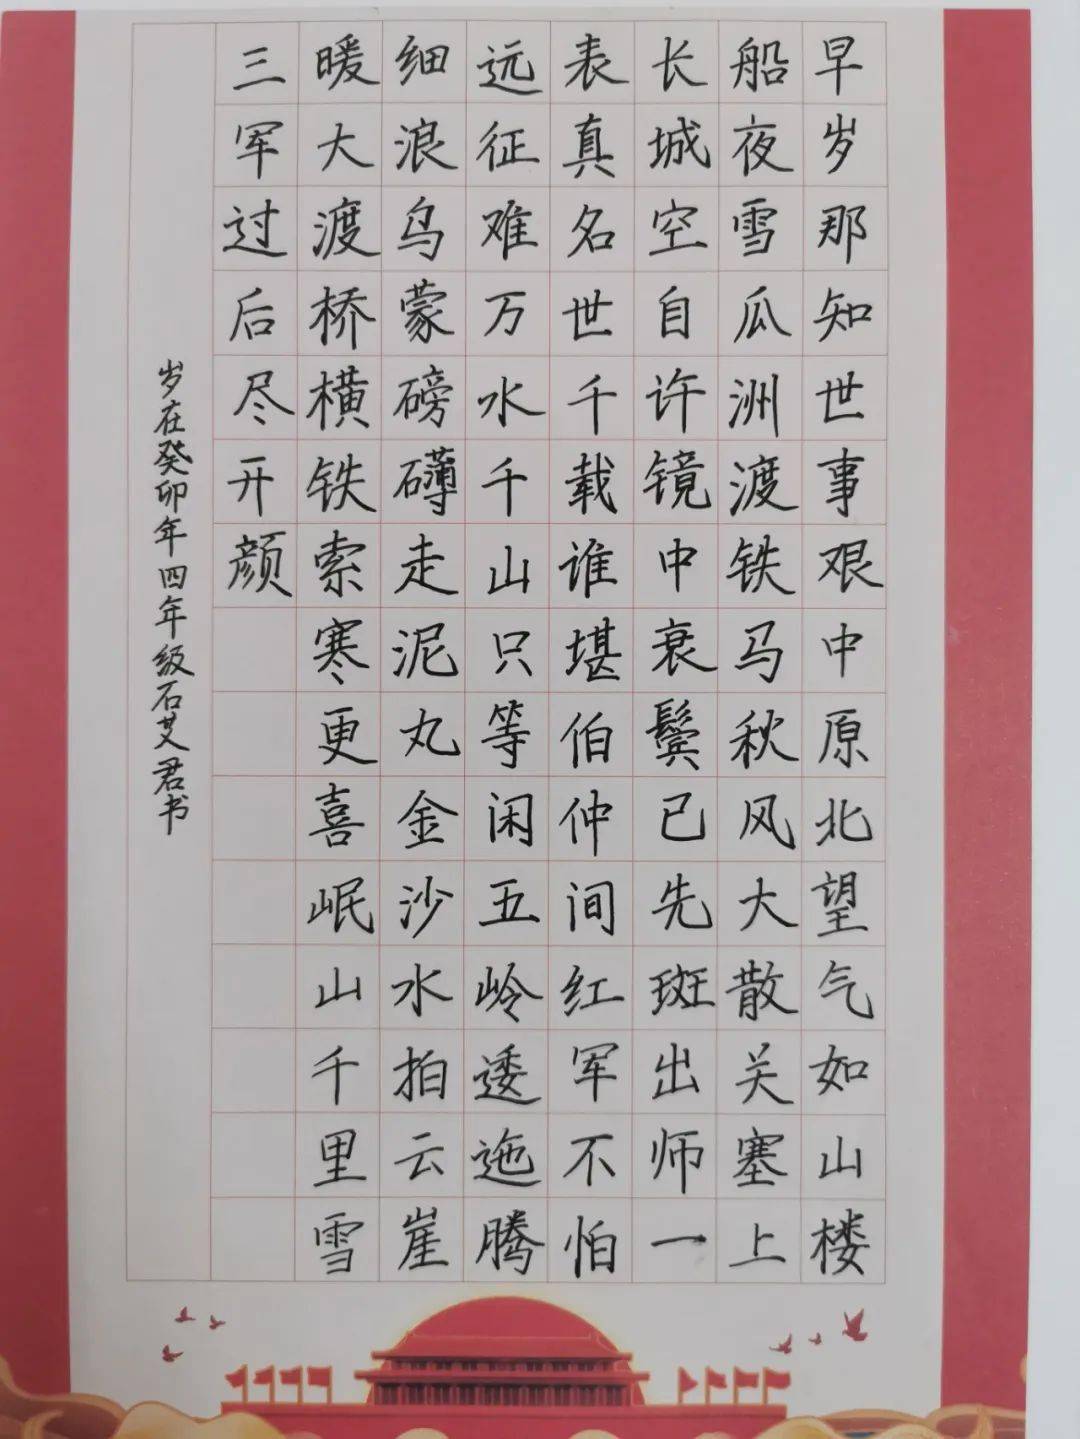 早岁那知世事艰中原北望气如山楼
船夜雪瓜洲渡铁马秋风大散关塞上
长城空自许镜中衰鬓已先斑出师一
表真名世千载谁堪伯仲间红军不怕
远征难万水千山只等闲五岭逶迤腾
细浪乌蒙磅礴走泥丸金沙水拍云崖
暖大渡桥横铁索寒更喜岷山千里雪
三军过后尽开颜
岁在癸卯年四年级石艾君书